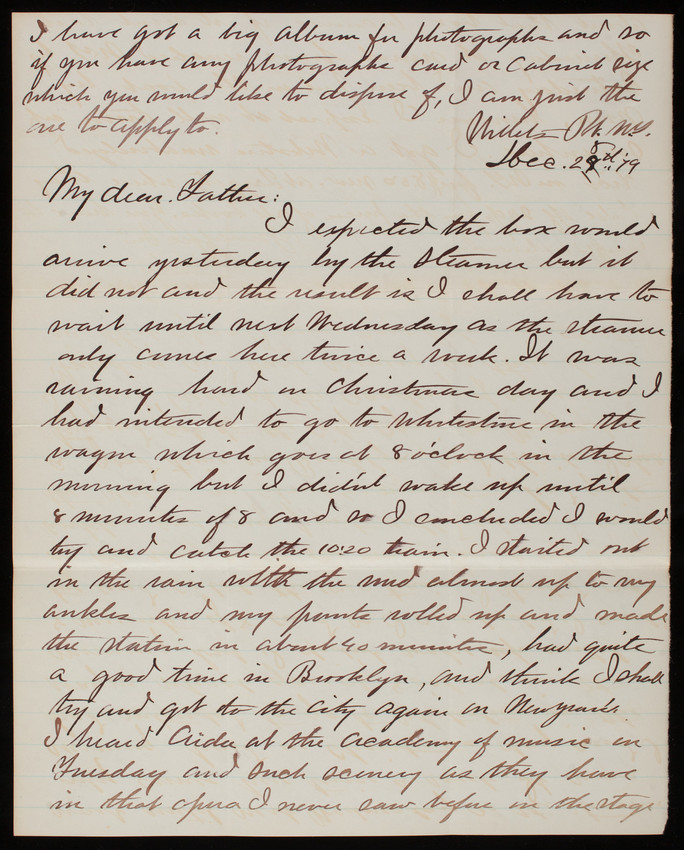 I have got a big album for photographs and so
if you have any photographs card or Cabinet size
which you would like to dispose of, I am just the
one to apply to.
Willets Pt. N.Y.
Dec. 28th: '79
My dear Father:
I expected the box would
arrive yesterday by the steamer but it
did not and the result is I shall have to
wait until next Wednesday as the steamer
only comes here twice a week. It was
raining hard on Christmas day and I
had intended to go to Whitestone in the
wagon which goes at 8 o'clock in the
morning but I didn't wake up until
8 minutes of 8 and so I concluded I would
try and catch the 10:20 train. I started out
in the rain with the mud almost up to my
ankles and my pants rolled up and made
the station in about 40 minutes, had quite
a good time in Brooklyn, and think I shall
try and get to the City again on Newyear's
I heard Aida at the academy of music on
Tuesday and such scenery as they have
in that opera I never saw before on the stage